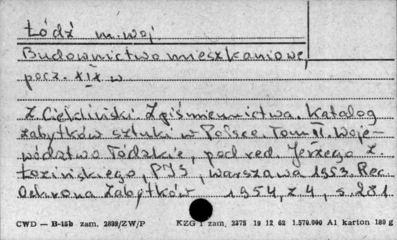 Łódź m. woj.
Budownictwo mieszkaniowe,
pocz. XIX w
Z. Ciekliński. Z piśmiennictwa. Katalog
zabytków sztuki w Polsce Tom II. Woje-
wództwo łódzkie, pod red. Jerzego Z.
Łozińskiego, PIS, Warszawa 1953. Rec.
Ochrona Zabytków 1954, z 4, s. 281
CWD — B-15b zam. 2839/ZW/P KZG 1 zam. 2375 19 12 62 1.570.000 A1 karton 180 g